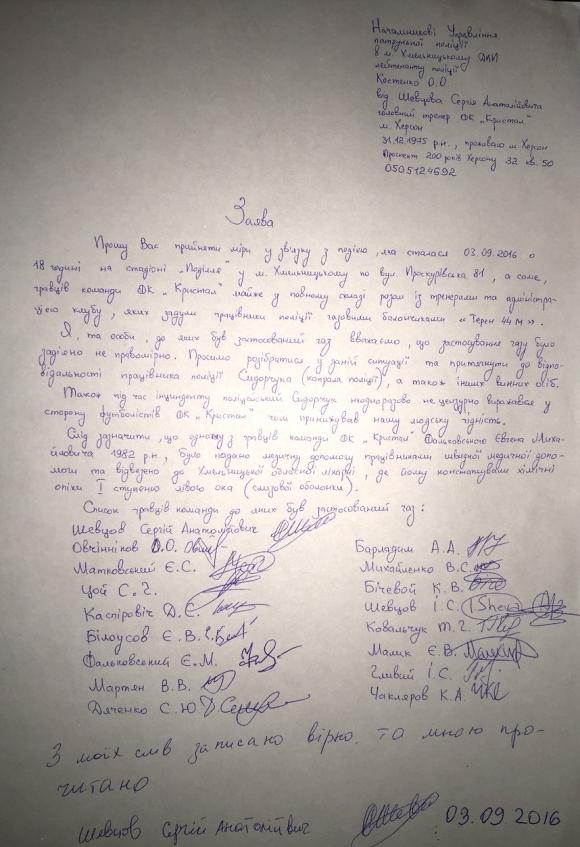 Начальникові Управління
патрульної поліції
в м. Хмельницькому ДПП
лейтенанту поліції
Костенко О.О.
від Шевцова Сергія Анатолійовича
головний тренер ФК „Кристал"
м. Херсон
31.12.1975 р.н., проживаю м Херсон
Проспект 200 років Херсону 32 кв. 50
0505124692
Заява
Прошу Вас прийняти міри у зв'язку з подією, яка сталася 03.09.2016 о
18 годині на стадіоні „Поділля" у м. Хмельницькому по вул. Проскурівська 81, а саме,
гравців команди ФК „Кристал" майже у повному складі разом із тренерами та адміністра-
цією клубу, яких задули працівники поліції газовими балончиками «Терен 4М».
Я, та особи, до яких був застосований газ вважаємо, що застосування газу було
задіяно не правомірно. Просимо розібратися у даній ситуації та притягнути до відпо-
відальності працівника поліції Сидорчука (капрала поліції), а також інших винних осіб.
Також під час інциденту поліцейський Сидорчук неодноразово не цензурно виражався у
сторону футболістів ФК „Кристал" чим принижував нашу людську гідність.
Слід зазначити, що одному з гравців команди ФК „Кристал" Фальковською Євгена Миха-
йловича 1982 р.н., було подано медичну допомогу працівниками швидкої медичної допо-
моги та відвезено до Хмельницької обласної лікарні, де йому констатували хімічні
опіки I ступеню лівого ока (слизової оболонки).
Список гравців команди до яких був застосований газ:
Шевцов Сергій Анатолійович
Овчінніков О.О.
Матковський Є.С.
Цой С.Г.
Каспіровіч Д.Є.
Білоусов Є.В.
Фальковський Є.М.
Мартян В.В.
Дяченко С.Ю.
Барладим А.А.
Михайленко В.С.
Бічевой К.В.
Шевцов І.С.
Ковальчук Т.Г.
Малик Є.В.
Гливий І.С.
Чакляров К.А.
З моїх слів записано вірно, та мною про-
читано
Шевцов Сергій Анатолійвич 03.09.2016